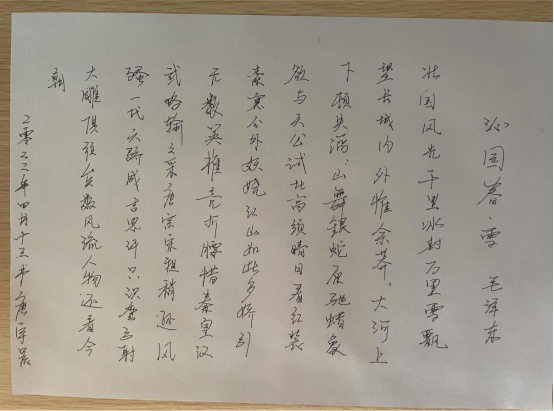 沁园春·雪 毛泽东
北国风光千里冰封万里雪飘
望长城内外惟余莽莽大河上
下顿失滔滔山舞银蛇原驰蜡象
欲与天公试比高须晴日看红装
素裹分外妖娆江山如此多娇引
无数英雄竞折腰惜秦皇汉
武略输文采唐宗宋祖稍逊风
骚一代天骄成吉思汗只识弯弓射
大雕俱往矣数风流人物还看今
朝
二零二二年四月十三书